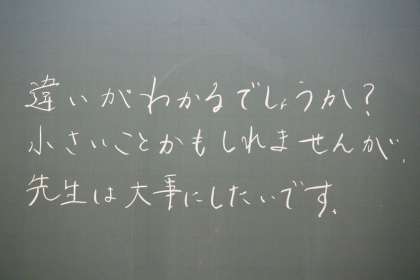 違いがわかるでしょうか?
小さいことかもしれませんが、
先生は大事にしたいです。